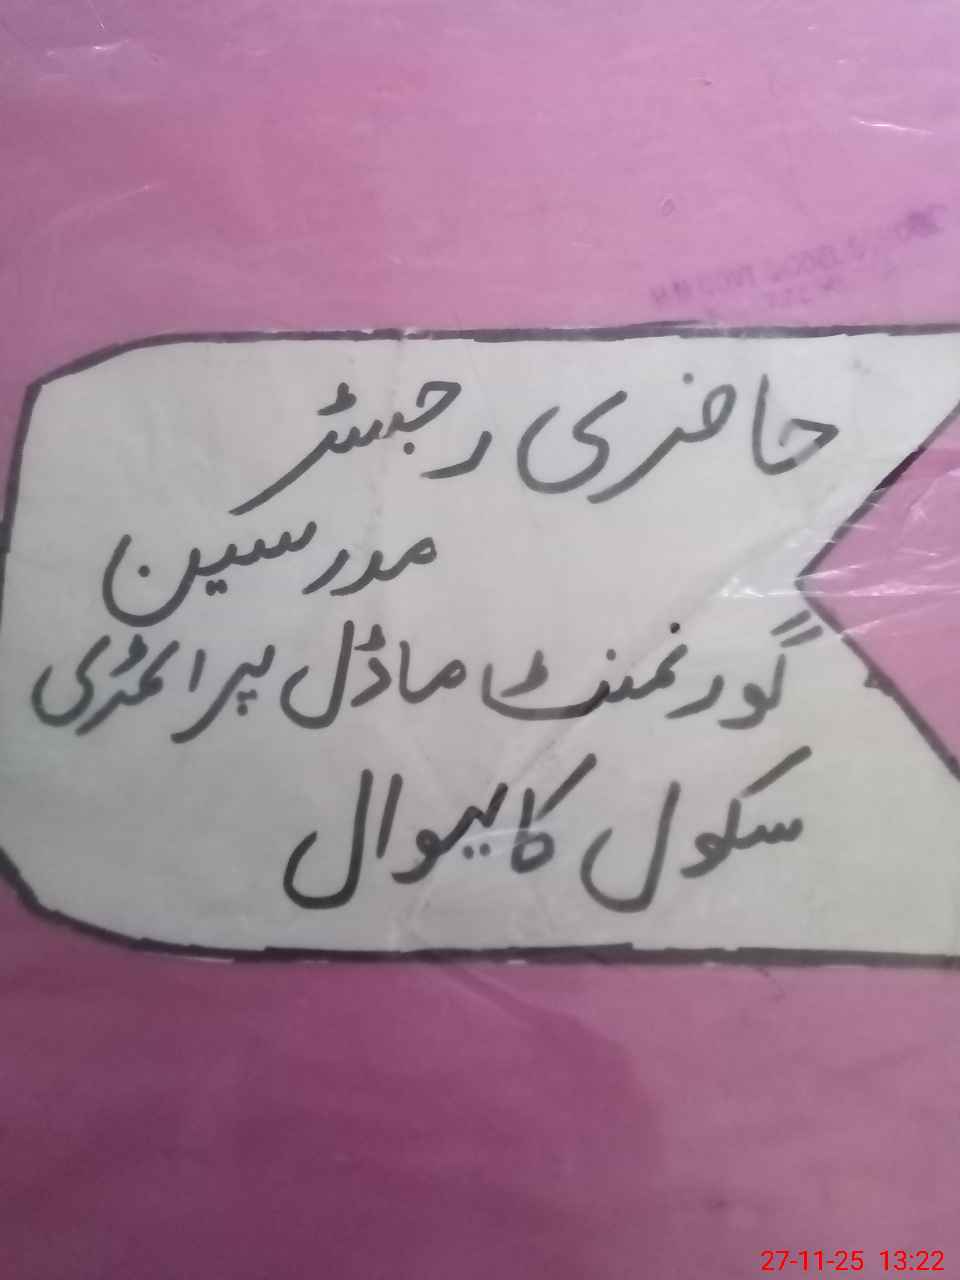 حاضری رجسٹر
مدرسین
گورنمنٹ ماڈل پرائمری
سکول کالیوال
27-11-25 13:22